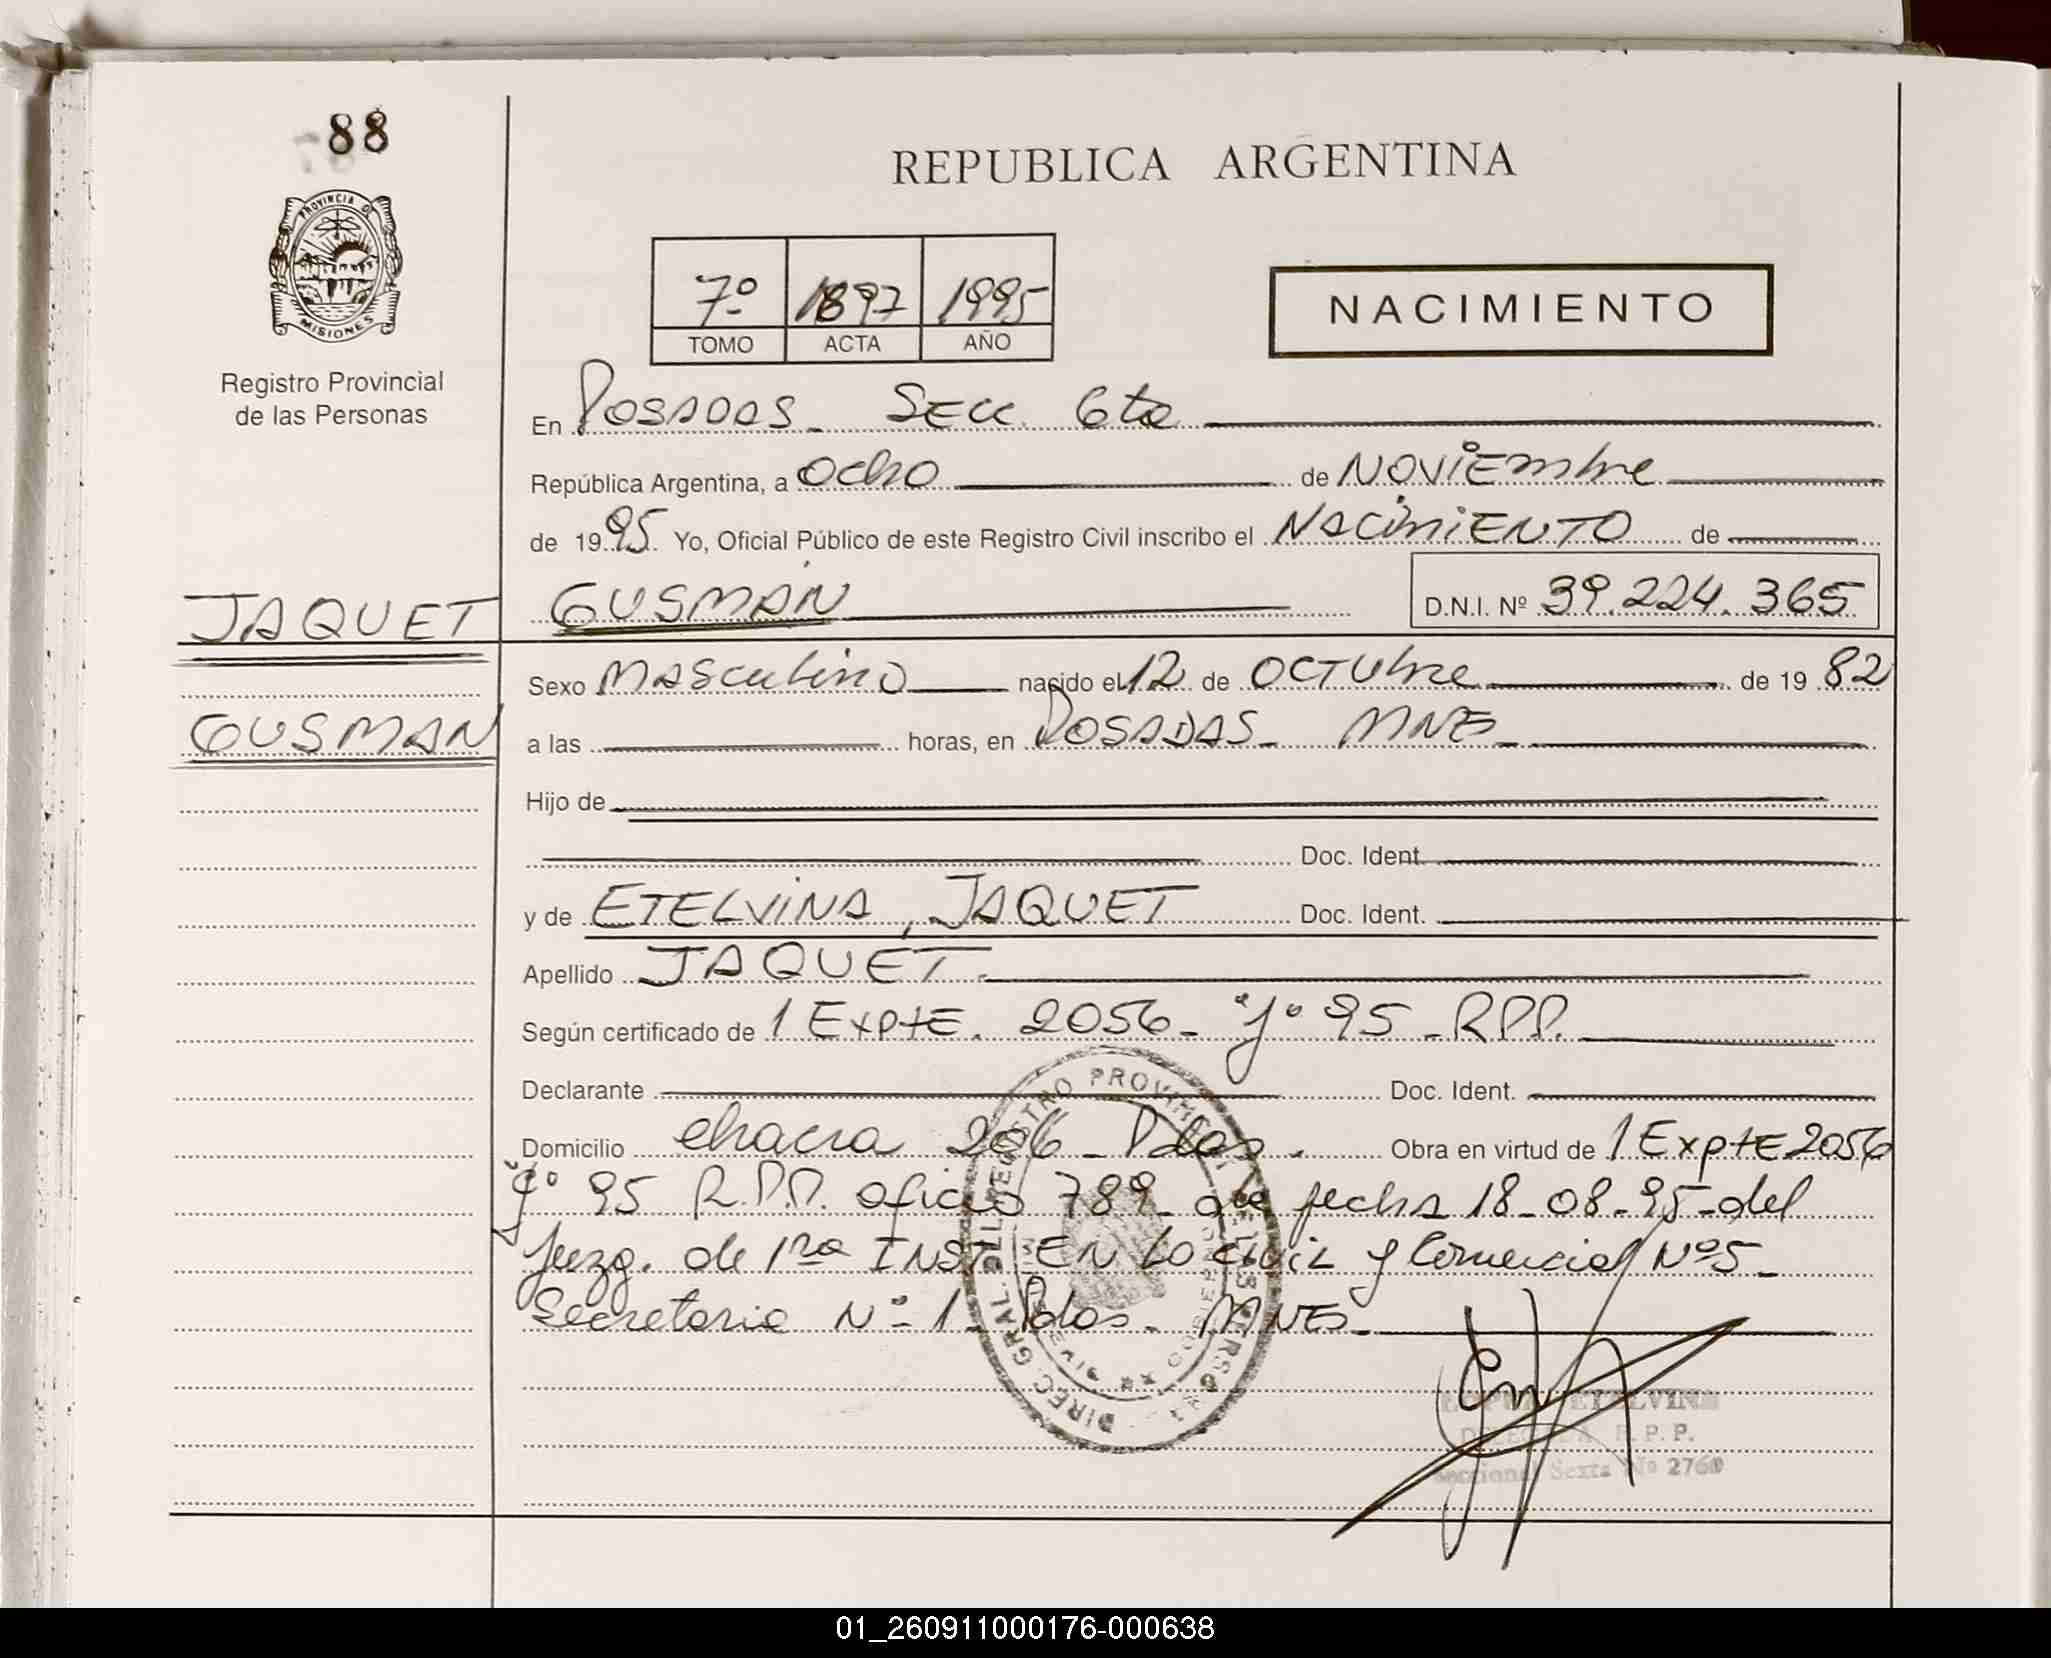 88
REPUBLICA ARGENTINA
PROVINCIA D
MISIONES
Registro Provincial
de las Personas
7º 1897 1995
TOMO ACTA AÑO
NACIMIENTO
En POSADAS - SECC. 6ta
República Argentina, a ocho de NOVIEmbre
de 1995 Yo, Oficial Público de este Registro Civil inscribo el NACimiENTO de
JAQUET
GUSMAN
GUSMAN
D.N.I. Nº 39.224.365
Sexo MAsculino nacido el 12 de OCTUbre de 1982
a las horas, en POSADAS - MNES
Hijo de
Doc. Ident.
y de ETELVINA, JAQUET Doc. Ident.
Apellido JAQUET.
Según certificado de 1 ExptE. 2056 - "J" 95 - RPP.
Declarante Doc. Ident.
Domicilio chacra 206 - Pdas. Obra en virtud de 1 ExptE 2056
"J" 95 R.P.P. oficio 789 - de fecha 18-08-95 - del
Juzg. de 1ra INST. EN LO CIVIL y Comercial Nº 5 -
Secretaria Nº 1 - Pdas - MNES -
DIREC. GRAL. DEL REGISTRO PROVINCIAL DE LAS PERSONAS
ETELVINA
DELEGADA R.P.P.
Seccional Sexta Nº 2760
01_260911000176-000638